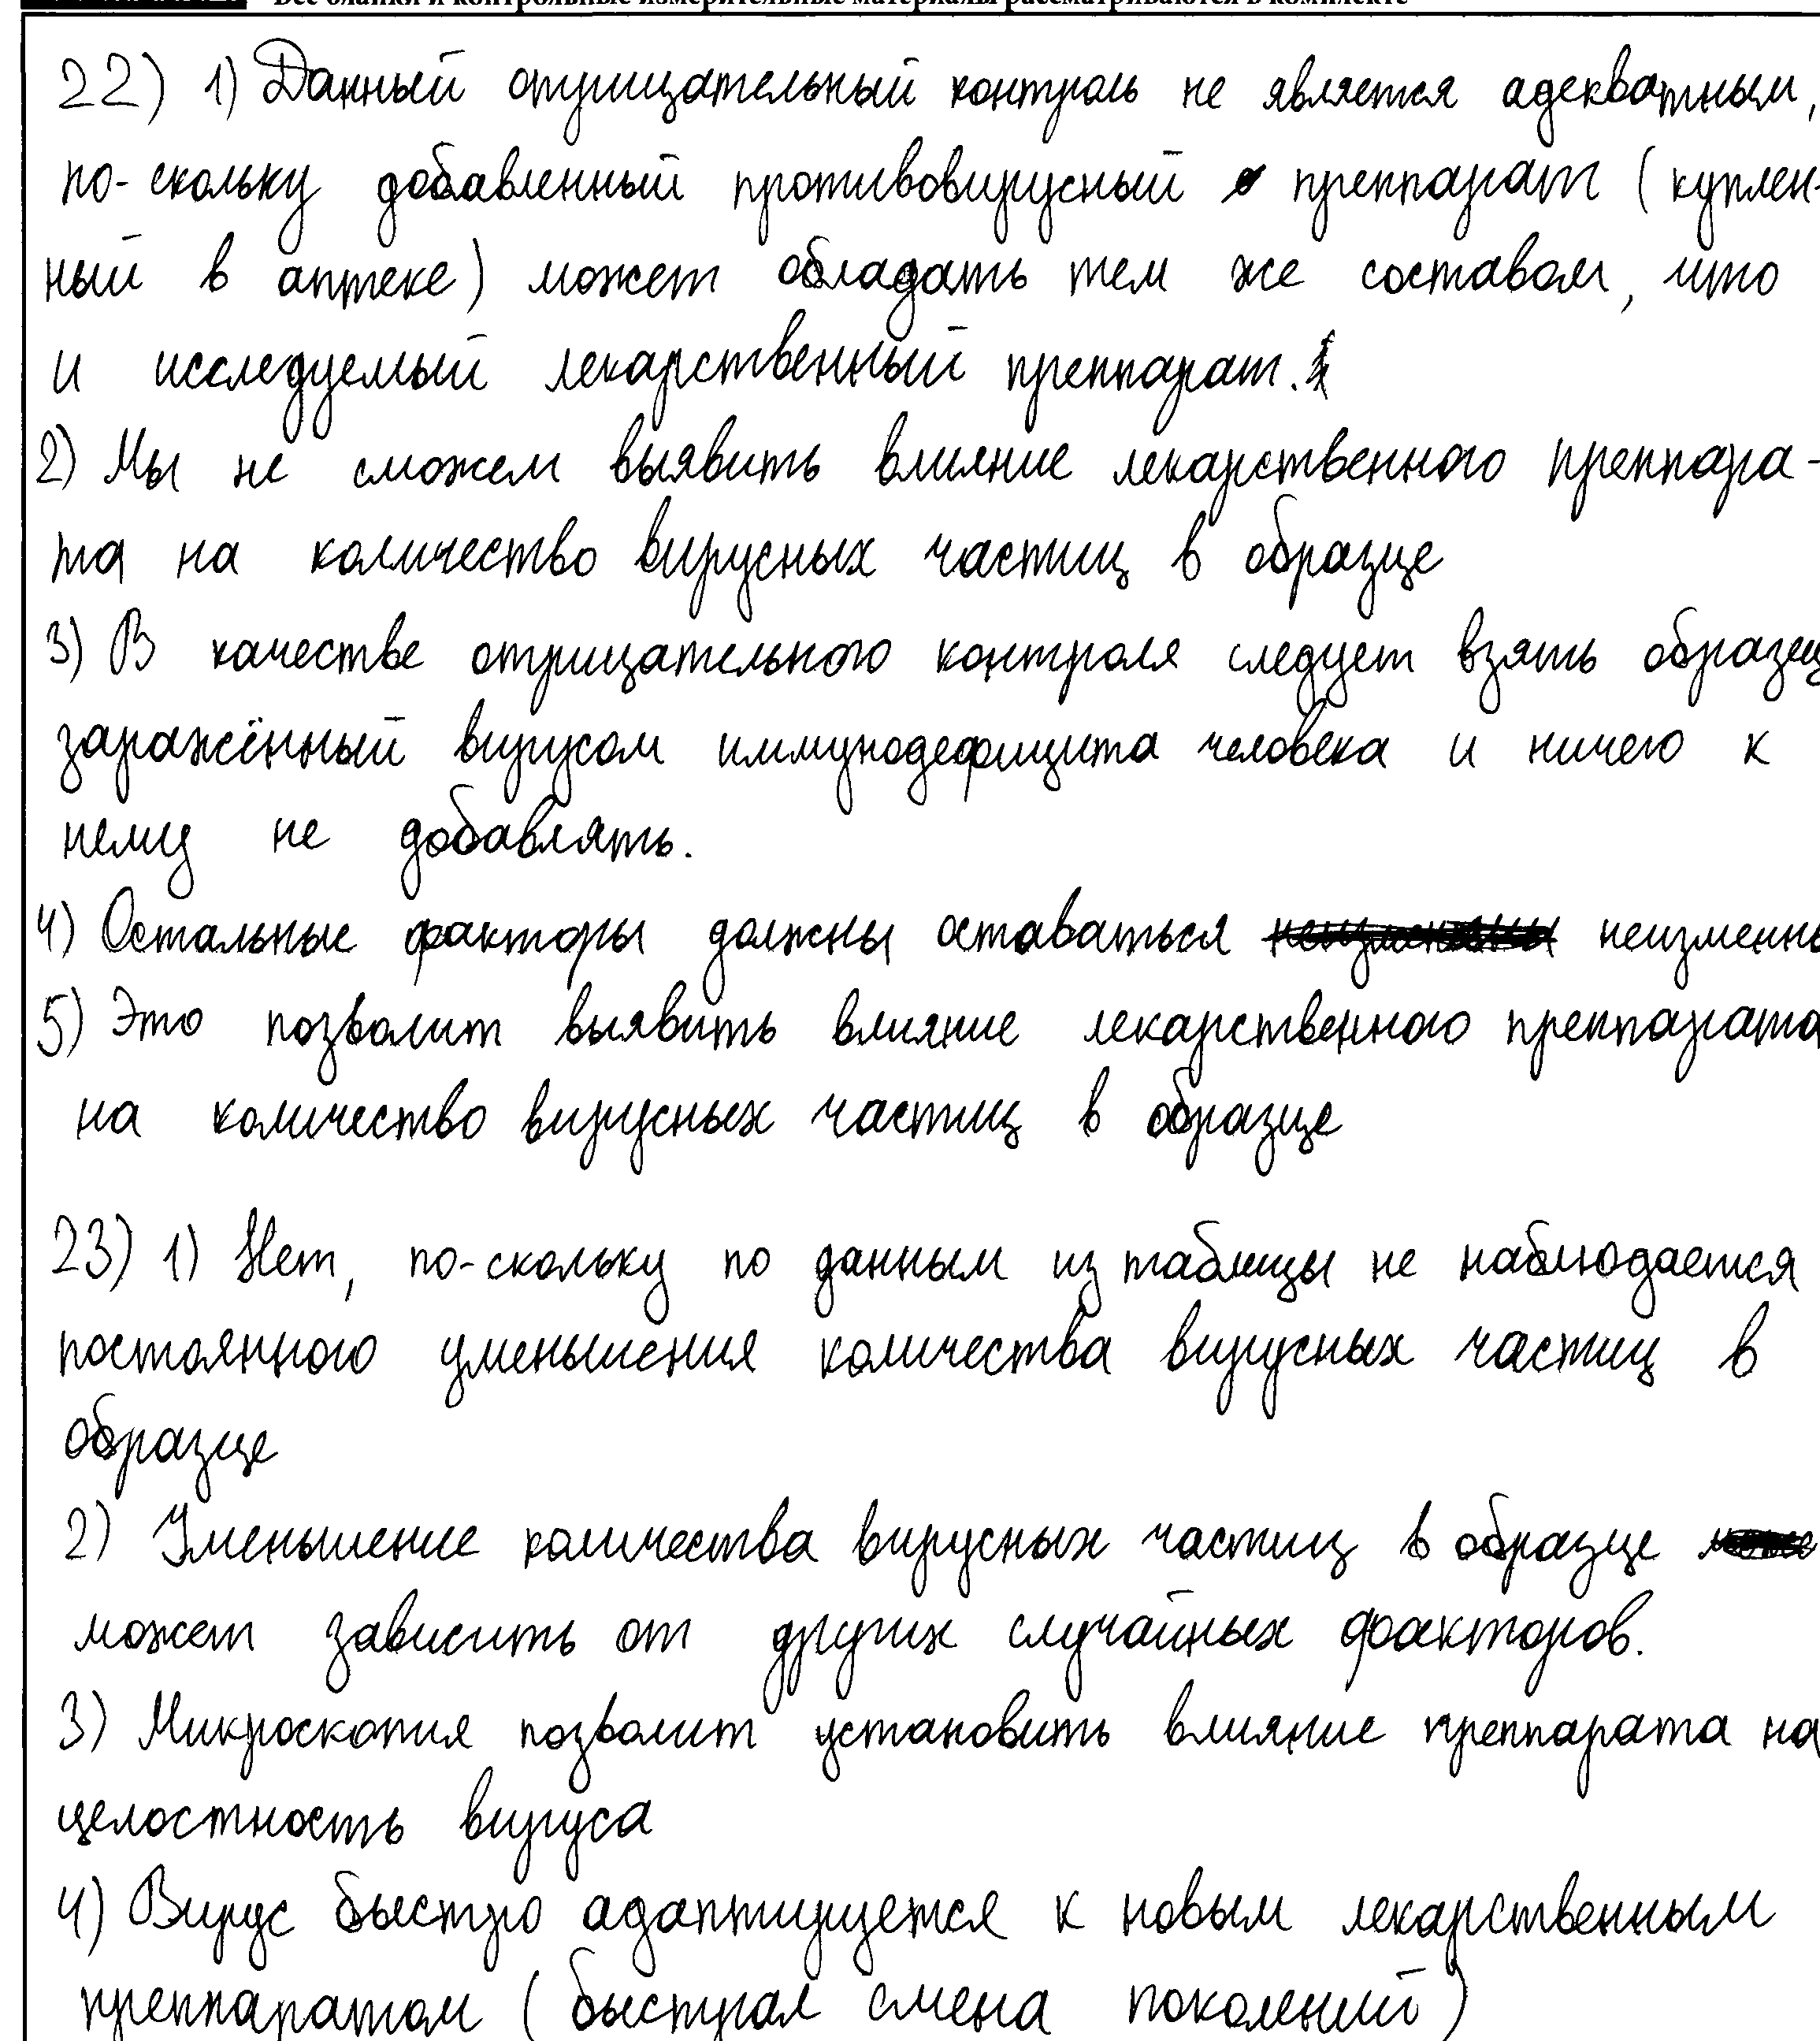 Все бланки и контрольные измерительные материалы рассматриваются в комплекте
22) 1) Данный отрицательный контроль не является адекватным,
по-скольку добавленный противовирусный преппарат (куплен-
ный в аптеке) может обладать тем же составом, что
и исследуемый лекарственный преппарат.
2) Мы не сможем выявить влияние лекарственного преппара-
та на количество вирусных частиц в образце
3) В качестве отрицательного контроля следует взять образец
заражённый вирусом иммунодефицита человека и ничего к
нему не добавлять.
4) Остальные факторы должны оставаться неизменны неизменны
5) Это позволит выявить влияние лекарственного преппарата
на количество вирусных частиц в образце
23) 1) Нет, по-скольку по данным из таблицы не наблюдается
постоянного уменьшения количества вирусных частиц в
образце
2) Уменьшение количества вирусных частиц в образце
может зависить от других случайных факторов.
3) Микроскопия позволит установить влияние преппарата на
целостность вируса
4) Вирус быстро адаптируется к новым лекарственным
преппаратом (быстрая смена поколений)